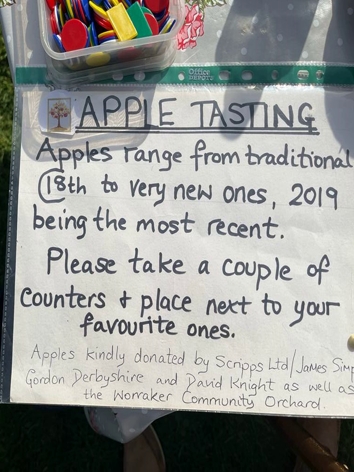 Office DEPOT
APPLE TASTING
Apples range from traditional
@18th to very new ones, 2019
being the most recent.
Please take a couple of
counters + place next to your
favourite ones.
Apples kindly donated by Scripps Ltd/James Simp
Gordon Derbyshire and David Knight as well as
the Worraker Community Orchard.